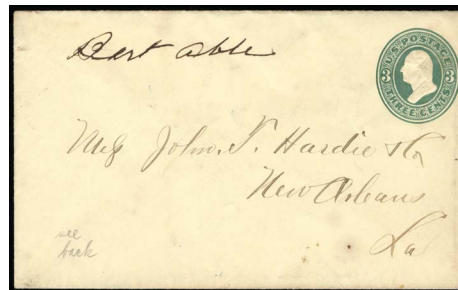 Bart Able
U.S. POSTAGE
3 3
THREE CENTS
Mess John. T. Hardie & Co
New Orleans
La
see
back